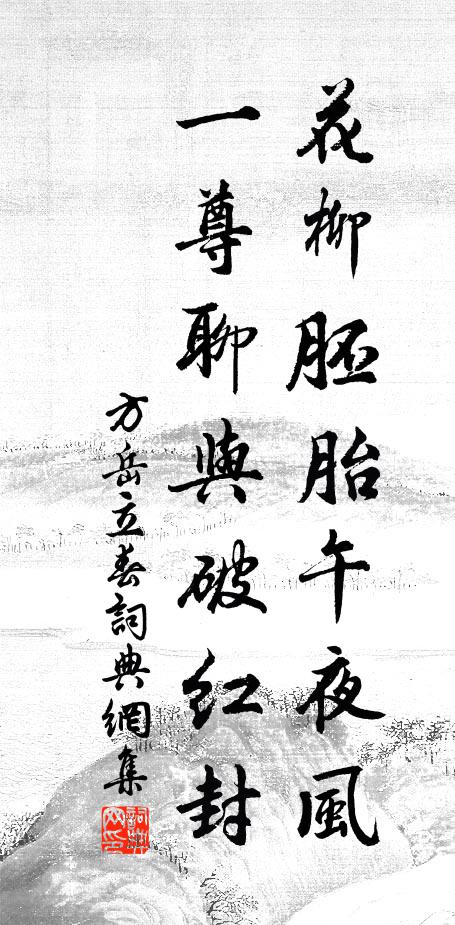 花柳胚胎午夜風
一尊聊與破紅封
方岳立春詞典網集